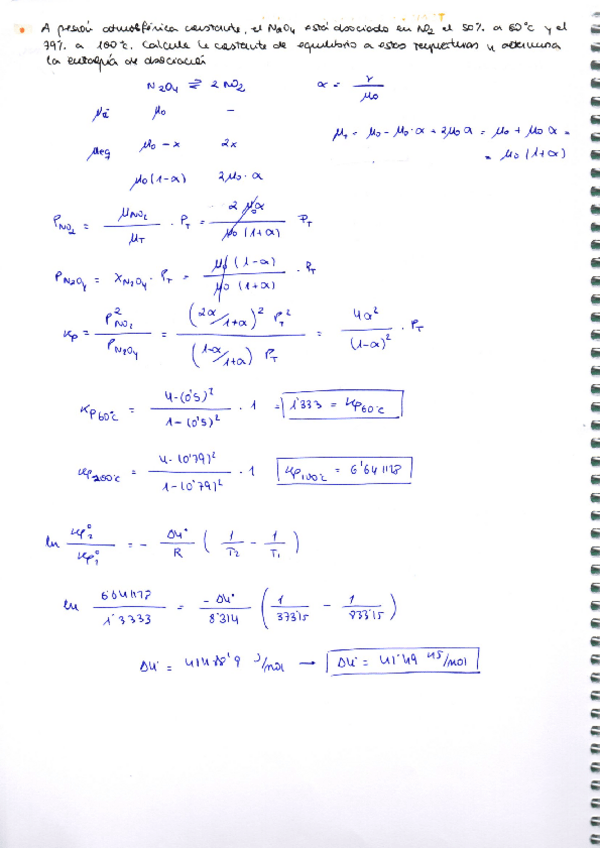 A presión atmosférica constante, el N2O4 está disociado en NO2 el 50% a 60°C y el
79% a 100°C. Calcule la constante de equilibrio a estas temperaturas y determina
la entalpía de disociación
N2O4 ⇌ 2 NO2 α = x / n0
ni n0 -
neq n0 - x 2x nT = n0 - n0·α + 2n0α = n0 + n0α =
n0(1-α) 2n0·α = n0(1+α)
PNO2 = nNO2 / nT · PT = 2n0α / n0(1+α) PT
PN2O4 = XN2O4 · PT = n0(1-α) / n0(1+α) · PT
Kp = P²NO2 / PN2O4 = (2α/1+α)² PT² / (1-α/1+α) PT = 4α² / (1-α)² · PT
Kp60°C = 4·(0'5)² / 1-(0'5)² · 1 = 1'333 = Kp60°C
Kp100°C = 4·(0'79)² / 1-(0'79)² · 1 Kp100°C = 6'641128
ln Kp2° / Kp1° = - ΔH° / R (1/T2 - 1/T1)
ln 6'641128 / 1'3333 = -ΔH° / 8'314 (1/373'15 - 1/333'15)
ΔH° = 41488'9 J/mol → ΔH° = 41'49 kJ/mol